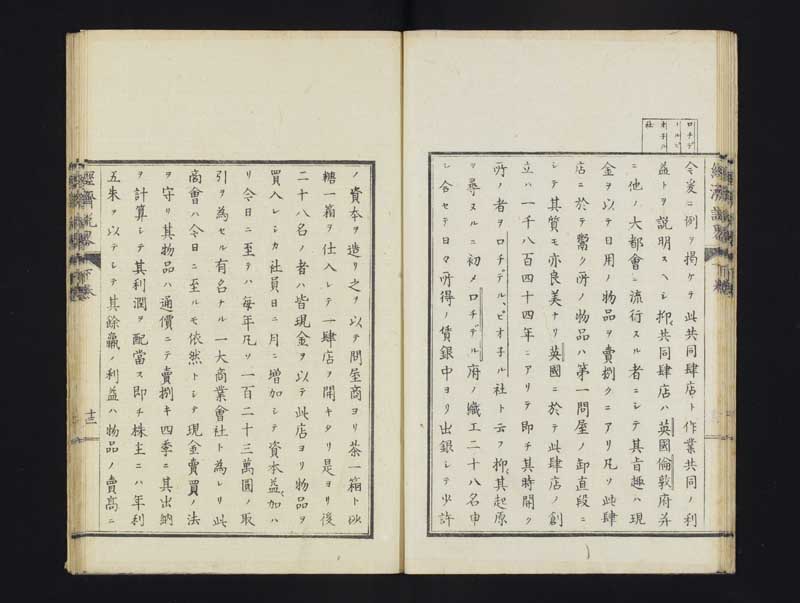 ロチデ
ールピ
オ子ル
社
今爰ニ例ヲ掲ケテ此共同肆店ト作業共同ノ利
益トヲ説明スヘシ抑共同肆店ハ英國倫敦府并
ニ他ノ大都會ニ流行スル者ニシテ其旨趣ハ現
金ヲ以テ日用ノ物品ヲ賣捌クニアリ凡ソ此肆
店ニ於テ鬻ク所ノ物品ハ第一問屋ノ卸直段ニ
シテ其質モ亦良美ナリ英國ニ於テ此肆店ノ創
立ハ一千八百四十四年ニアリテ即チ其時開ク
所ノ者ヲロチデル、ピオ子ル社ト云フ抑其起原
ヲ尋スルニ初メロチデル府ノ職工二十八名申
シ合セテ日々所得ノ賃銀中ヨリ出銀シテ少許
ノ資本ヲ造リ之ヲ以テ問屋商ヨリ茶一箱ト砂
糖一箱ヲ仕入レテ一肆店ヲ開キタリ是ヨリ後
二十八名ノ者ハ皆現金ヲ以テ此店ヨリ物品ヲ
買入レシカ社員日ニ月ニ増加シテ資本益加ハ
リ今日ニ至テハ毎年凡ソ一百二十三萬圓ノ取
引ヲ為セル有名ナル一大商業會社ト為レリ此
商會ハ今日ニ至ルモ依然トシテ現金賣買ノ法
ヲ守リ其物品ハ通價ニテ賣捌キ四季ニ其出納
ヲ計算シテ其利潤ヲ配當ス即チ株主ニハ年利
五朱ヲ以テシテ其餘贏ノ利益ハ物品ノ賣高ニ
經濟説略
十三